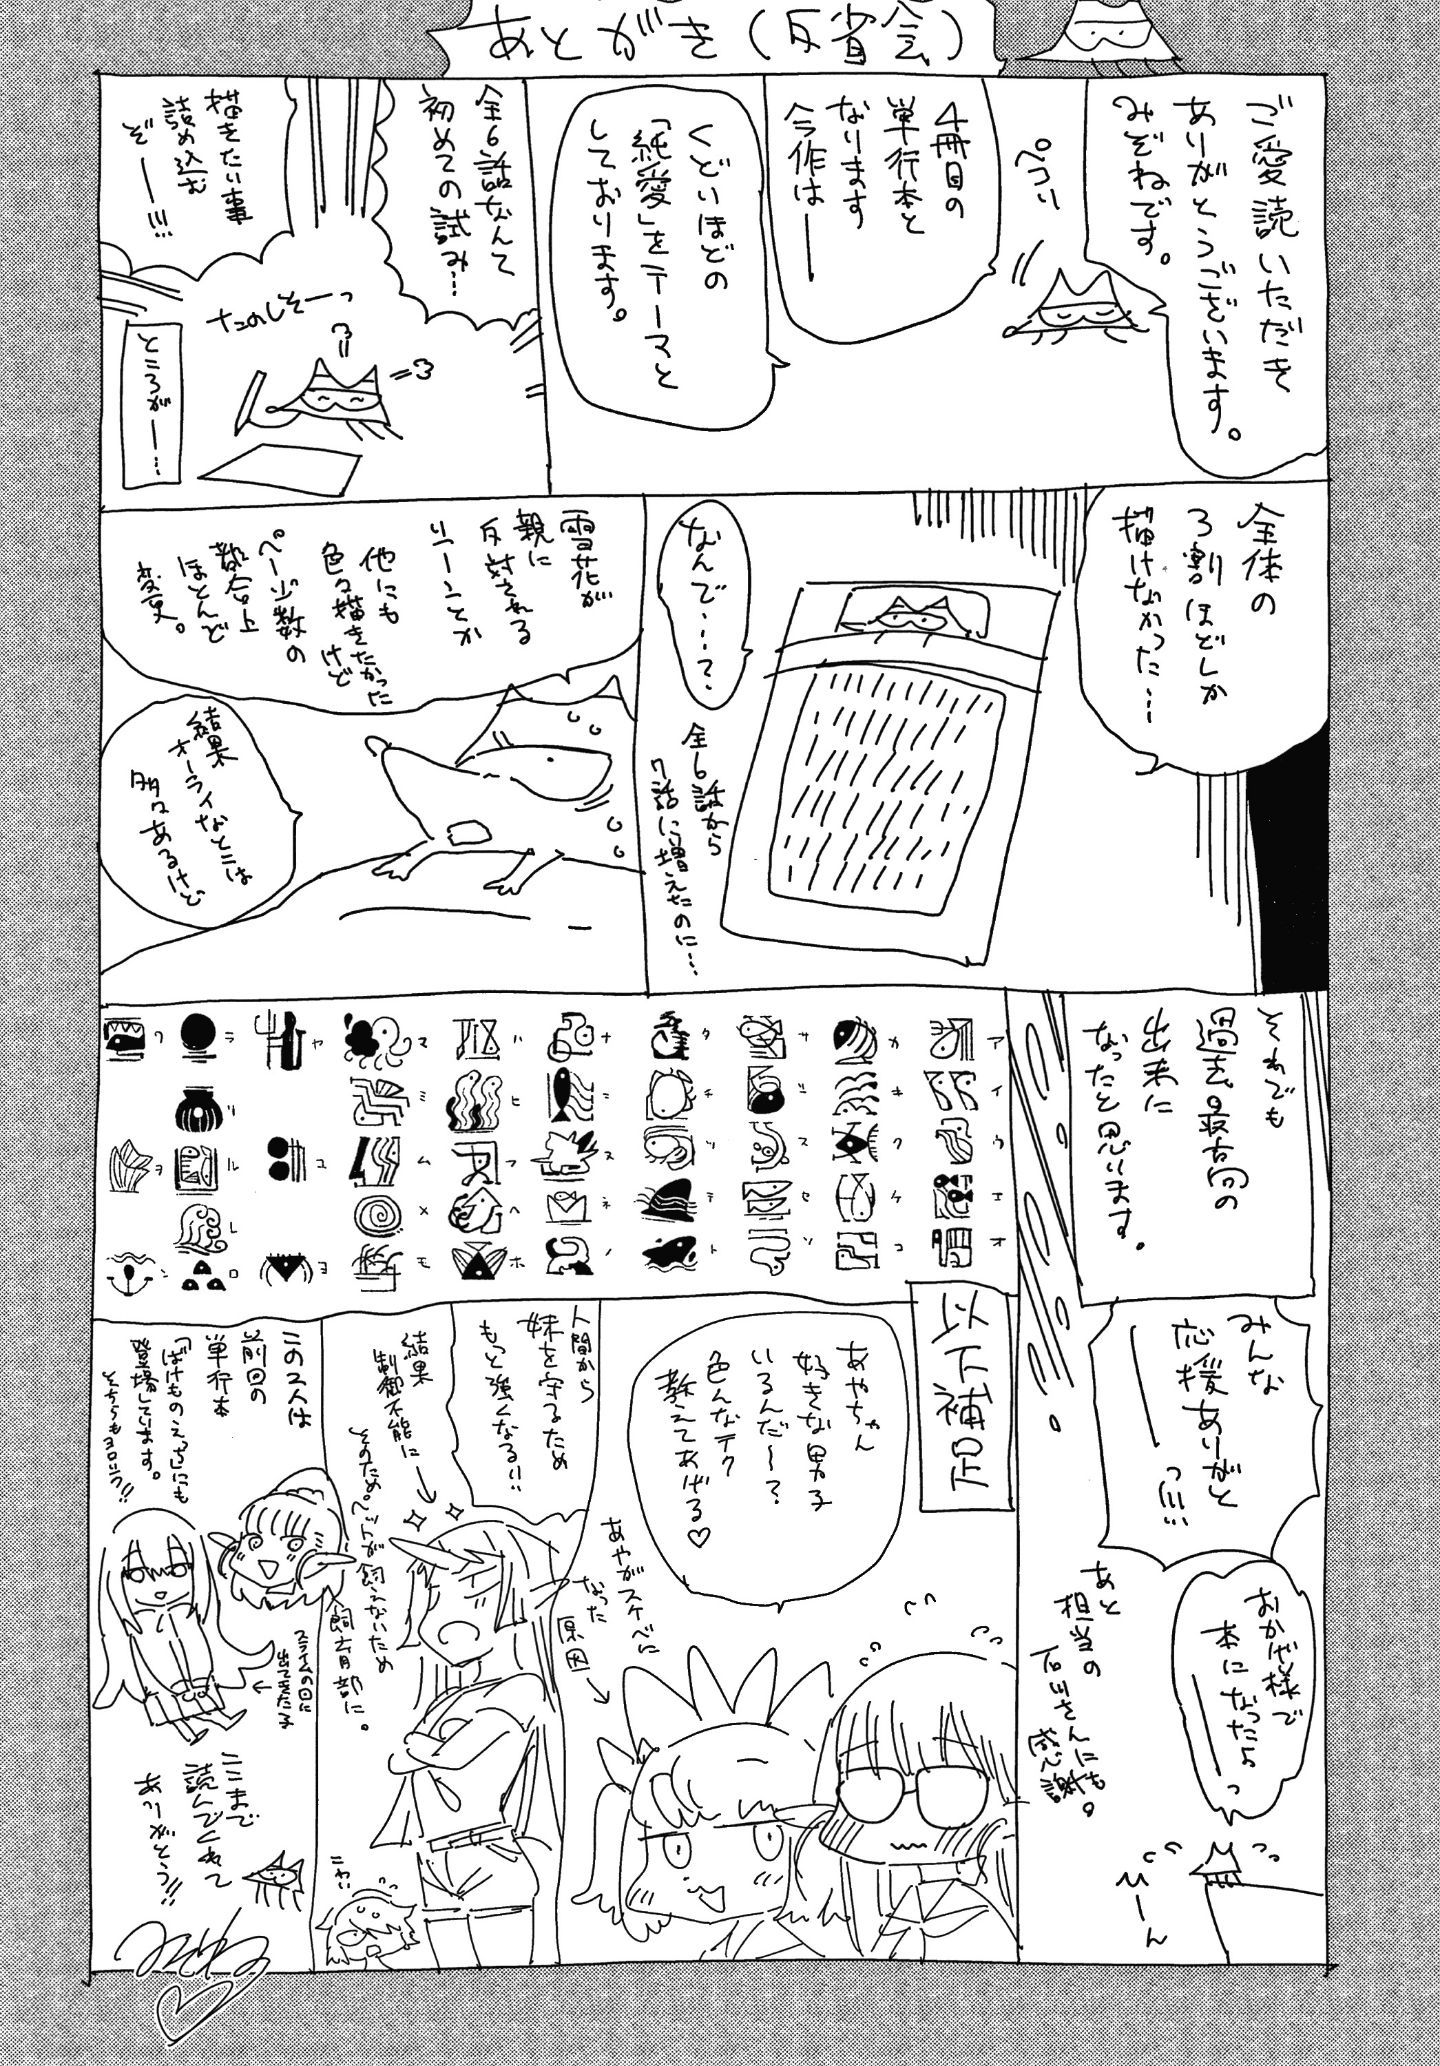 あとがき(反省会)
ご愛読いただき
ありがとうございます。
みぞねです。
ペコリ
4冊目の
単行本と
なります
今作は――
くどいほどの
「純愛」をテーマと
しております。
全6話なんて
初めての試み…
描きたい事
詰め込む
ぞー!!!
たのしそーっ
ところがー…
全体の
3割ほどしか
描けなかった…
なんで…?
全6話から
7話に増えたのに…
雪花が
親に
反対される
シーンとか
他にも
色々描きたかった
けど
ページ数の
都合上
ほとんど
変更。
結果
オーライなとこは
多々あるけど
それでも
過去最高の
出来に
なったと思います。
ア
イ
ウ
エ
オ
カ
キ
ク
ケ
コ
サ
シ
ス
セ
ソ
タ
チ
ツ
テ
ト
ナ
ニ
ヌ
ネ
ノ
ハ
ヒ
フ
ヘ
ホ
マ
ミ
ム
メ
モ
ヤ
ユ
ヨ
ラ
リ
ル
レ
ロ
ワ
ヲ
ン
みんな
応援ありがと
――っ!!!
おかげ様で
本になったらっ
あと
担当の
石川さんにも
感謝。
ひーん
以下補足
あやちゃん
好きな男子
いるんだ〜?
色んなテク
教えてあげる♡
あやがスケベに
なった
原因→
人間から
妹を守るため
もっと強くなる!!
結果
制御不能に→
そのため。ペットが飼えないため
飼育部に。
こわい
この2人は
前回の
単行本
「ばけものえっち」にも
登場しています。
そちらもヨロシク!!
スライムの回に
出てきた子
←
ここまで
読んでくれて
ありがとう!!
みぞね♡